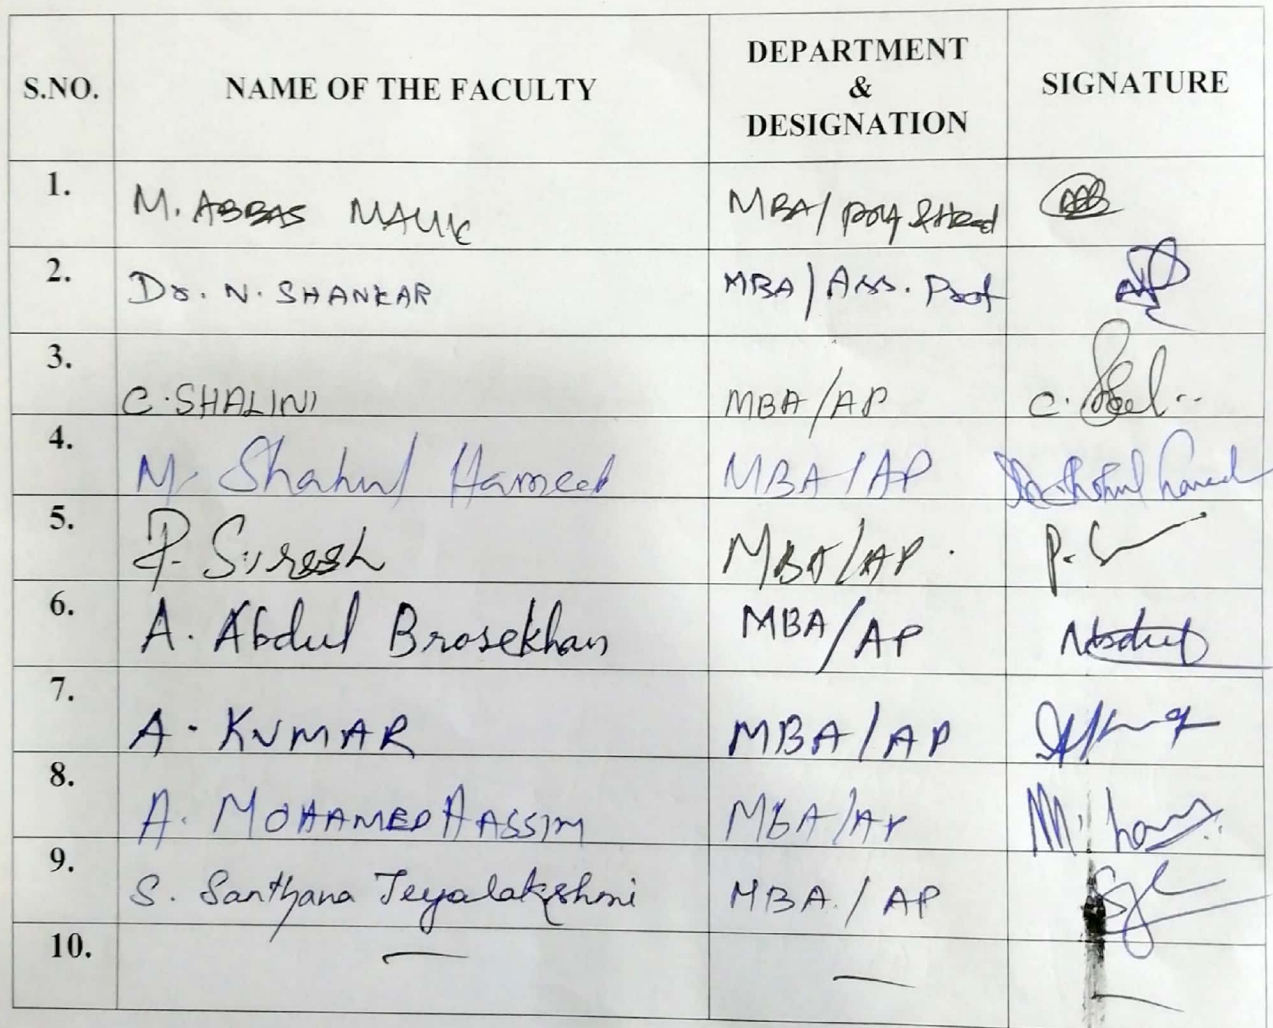 S.NO. NAME OF THE FACULTY DEPARTMENT & DESIGNATION SIGNATURE
1. M. ABBAS MALIK MBA/ Prof & Head
2. Dr. N. SHANKAR MBA/Ass. Prof
3. C. SHALINI MBA/AP C.
4. M. Shahul Hameed MBA/AP
5. P. Suresh MBA/AP. P.
6. A. Abdul Brosekhan MBA/AP Abdul
7. A. KUMAR MBA/AP
8. A. MOHAMED HASSIM MBA/AP
9. S. Santhana Jeyalakshmi MBA./AP
10. — — —